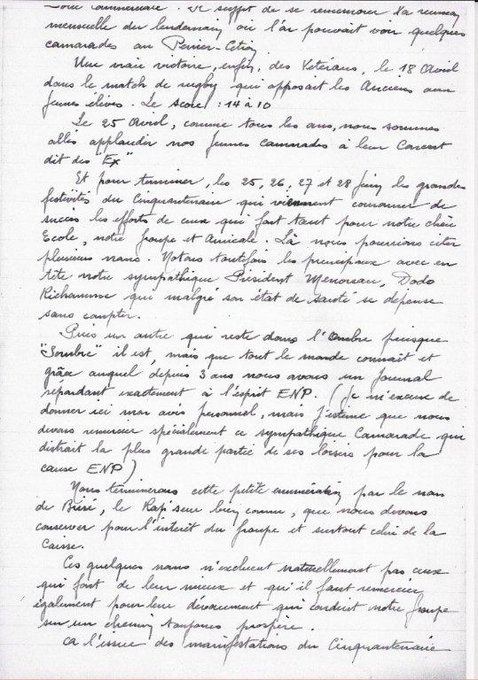 sans commentaire. Il suffit de se remémorer la réunion
mensuelle du lendemain où l'on pouvait voir quelques
camarades au Perrier-Citron
Une vraie victoire, enfin, des Vétérans, le 18 Avril
dans le match de rugby qui opposait les Anciens aux
jeunes élèves. Le score : 14 à 10
Le 25 Avril, comme tous les ans, nous sommes
allés applaudir nos jeunes camarades à leur Concert
dit des "Ex"
Et pour terminer, les 25, 26, 27 et 28 Juin les grandes
festivités du Cinquantenaire qui viennent couronner de
succès les efforts de ceux qui font tant pour notre chère
Ecole, notre Groupe et Amicale. Là nous pourrions citer
plusieurs noms. Notons toutefois les principaux avec en
tête notre sympathique Président Menoreau, Dodo
Richomme qui malgré son état de santé se dépense
sans compter.
Puis un autre qui reste dans l'Ombre puisque
"Sombre" il est, mais que tout le monde connait et
grâce auquel depuis 3 ans nous avons un Journal
répondant exactement à l'esprit ENP. (Je m'excuse de
donner ici mon avis personnel, mais j'estime que nous
devons remercier spécialement ce sympathique Camarade qui
distrait la plus grande partie de ses loisirs pour la
cause ENP)
Nous terminerons cette petite énumération par le nom
de Biré, le Rap'seur bien connu, que nous devons
conserver pour l'intérêt du Groupe et surtout celui de la
Caisse.
Ces quelques noms n'excluent naturellement pas ceux
qui font de leur mieux et qu'il faut remercier
également pour leur dévouement qui conduit notre Groupe
sur un chemin toujours prospère.
A l'issue des manifestations du Cinquantenaire